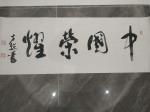 中國榮耀